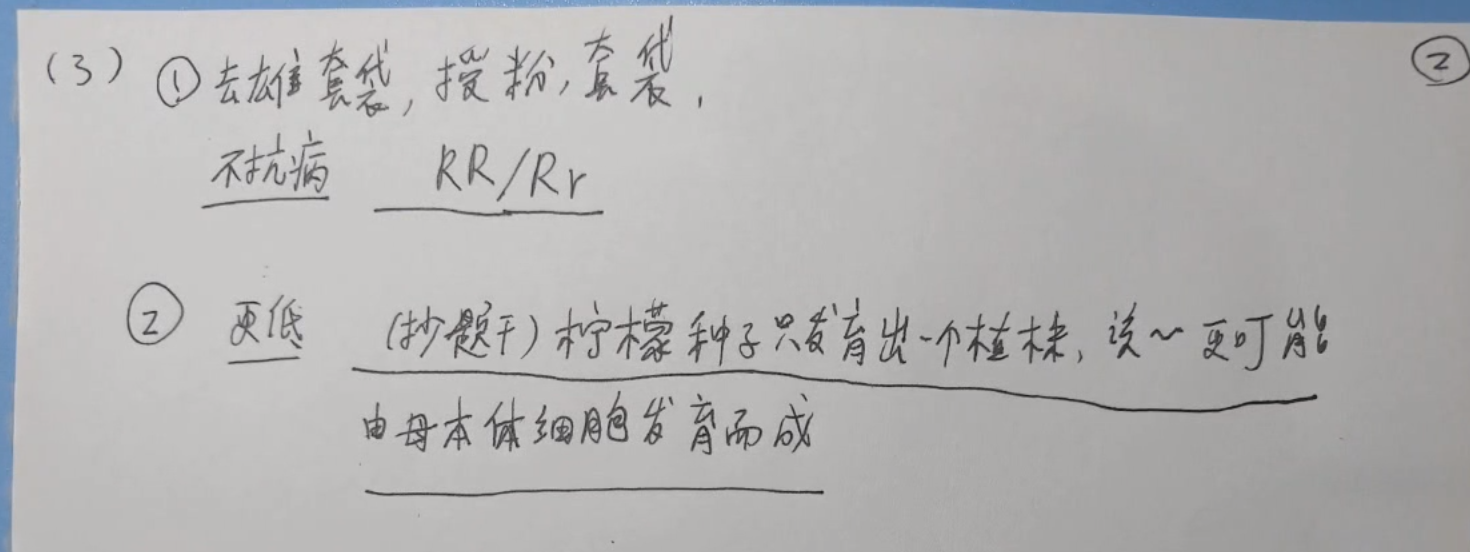 (3) ①去雄套袋,授粉,套袋,
②
不抗病 RR/Rr
② 更低 (抄题干)柠檬种子只发育出一个植株,该~更可能
由母本体细胞发育而成